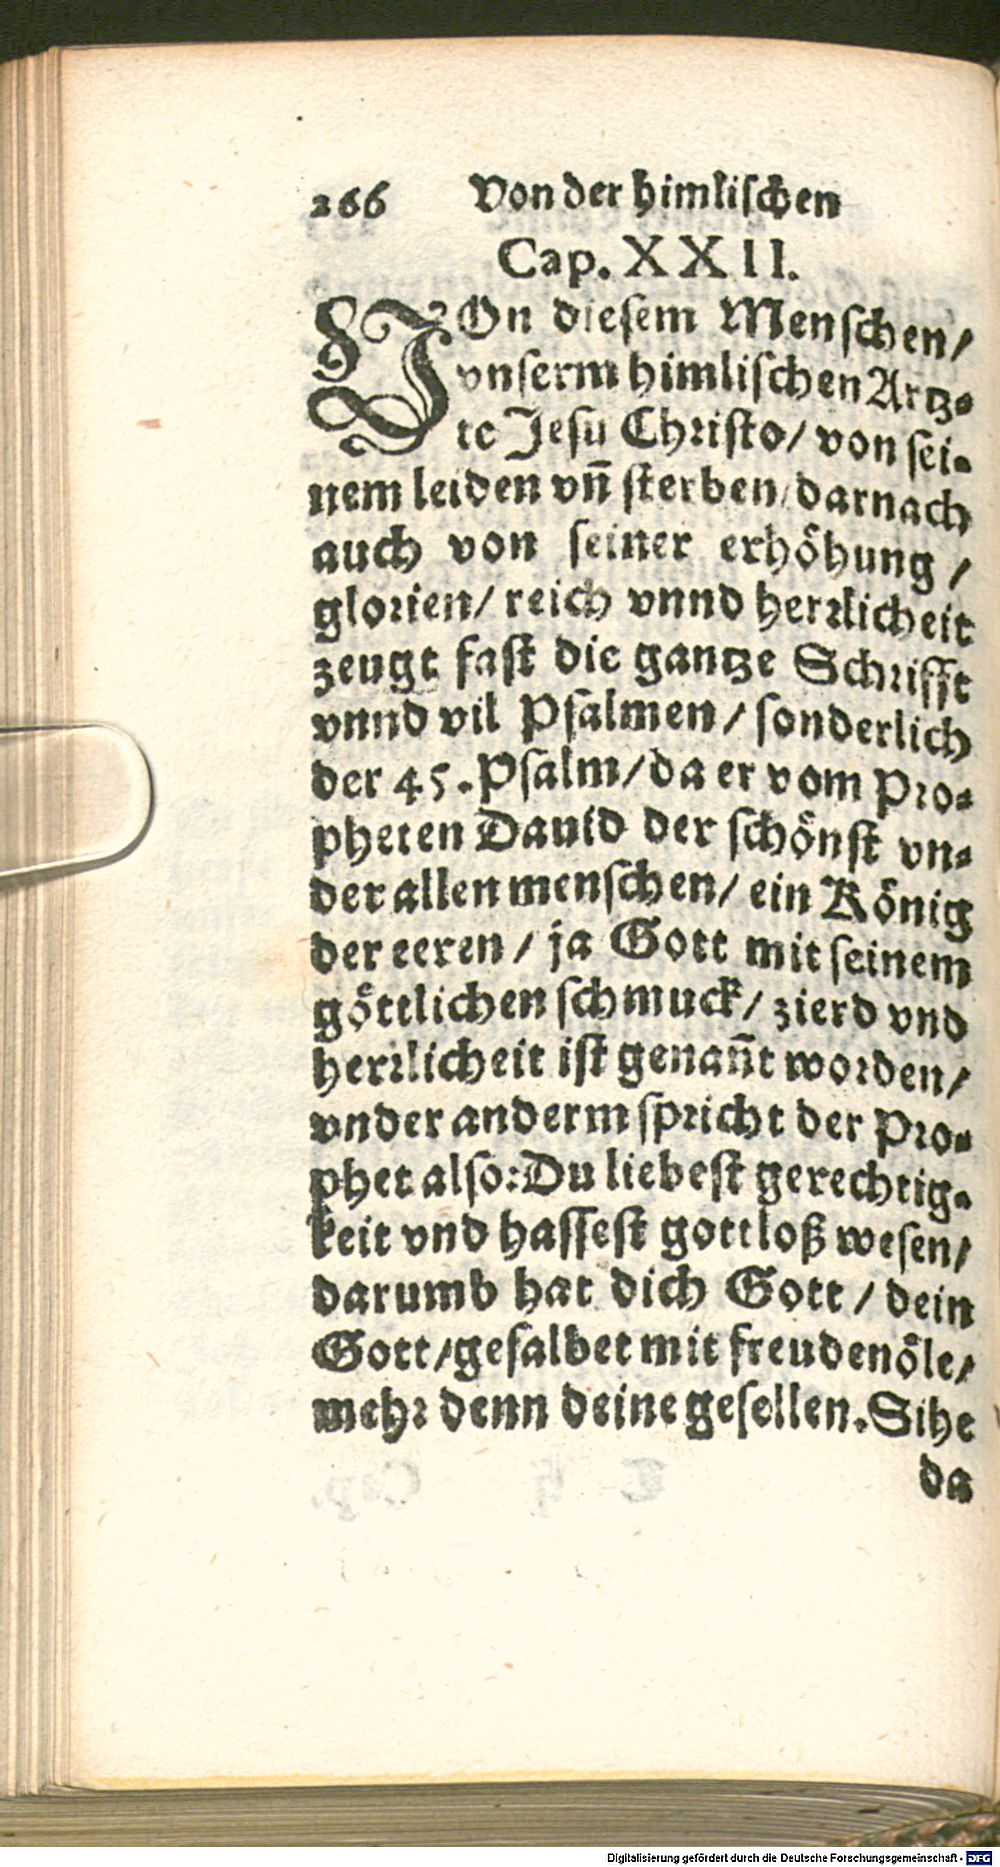 266 Von der himlischen
Cap. XXII.
VOn diesem Menschen/
vnserm himlischen Artz-
te Jesu Christo/ von sei-
nem leiden vñ sterben/ darnach
auch von seiner erhöhung/
glorien/ reich vnnd herrlicheit
zeugt fast die gantze Schrifft
vnnd vil Psalmen/ sonderlich
der 45. Psalm/ da er vom Pro-
pheten Dauid der schönst vn-
der allen menschen/ ein König
der eeren/ ja Gott mit seinem
göttlichen schmuck/ zierd vnd
herrlicheit ist genañt worden/
vnder anderm spricht der Pro-
phet also: Du liebest gerechtig-
keit vnd hassest gottloß wesen/
darumb hat dich Gott/ dein
Gott/ gesalbet mit freudenöle/
mehr denn deine gesellen. Sihe
da
Digitalisierung gefördert durch die Deutsche Forschungsgemeinschaft - DFG